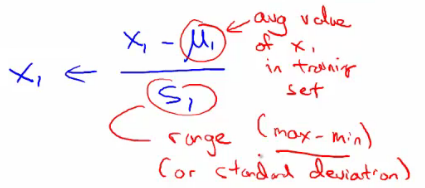 x₁ ← (x₁ - μ₁) / s₁
avg value
of x₁
in training
set
range (max-min)
(or standard deviation)